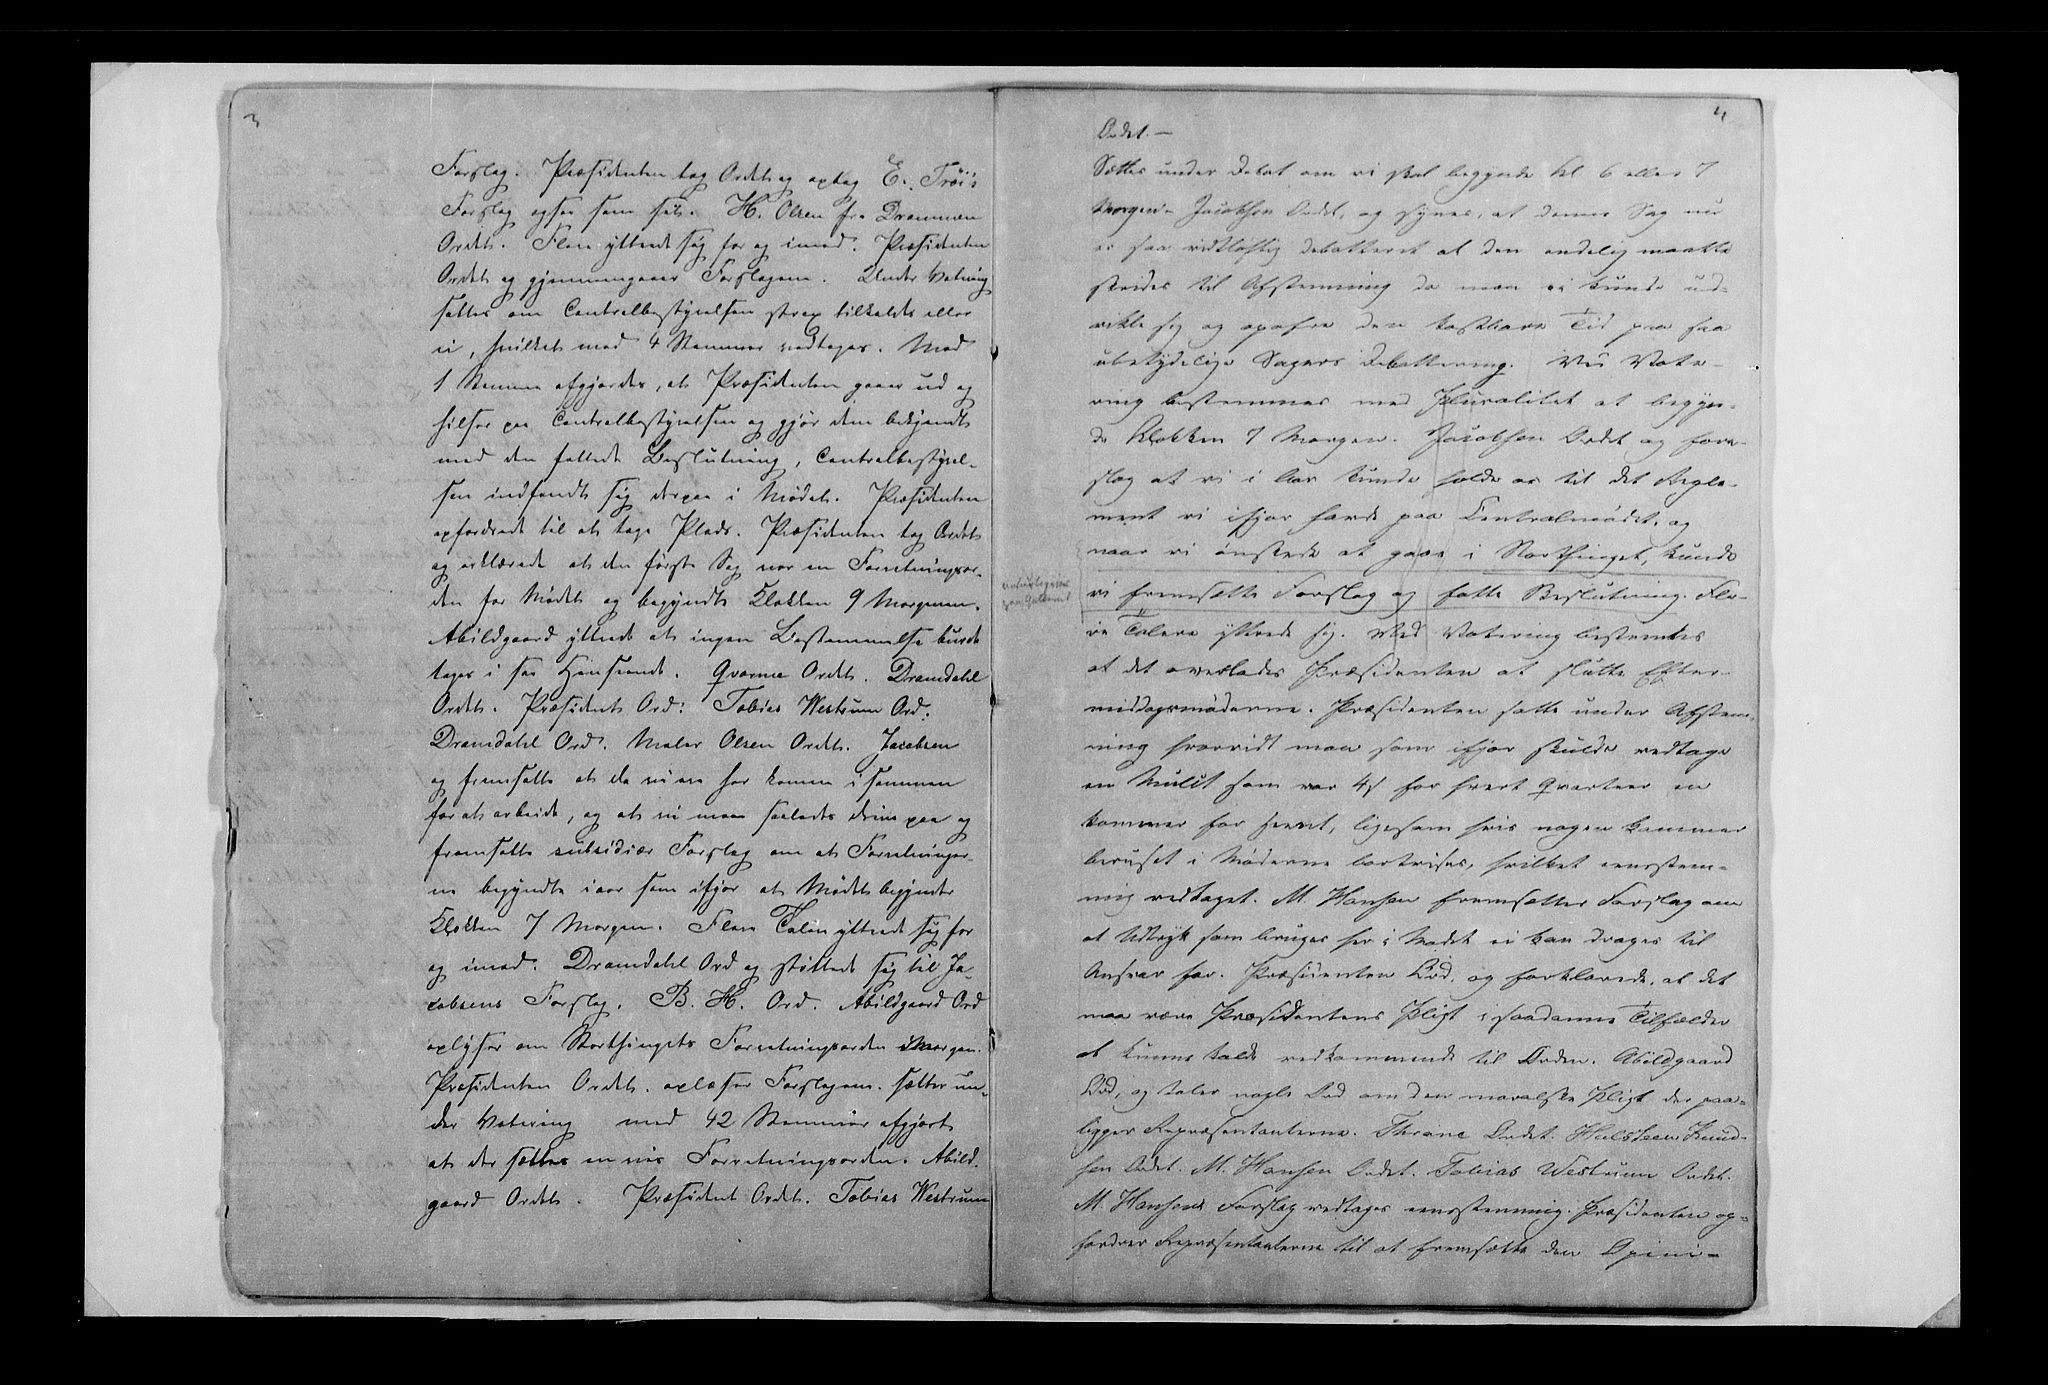 3
Forslag. Præsidenten tog Ordet og optog E. Trøi's
Forslag ogsaa som sit. H. Olsen fra Drammen
Ordet. Flere yttrede sig for og imod. Præsidenten
Ordet og gjennemgaaer Forslagene. Under Votering
sattes om Centralbestyrelsen strax tilkaldes eller
ei, hvilket med 4 Stemmer vedtages. Med
1 Stemme afgjordes, at Præsidenten gaaer ud og
hilser paa Centralbestyrelsen og gjør dem bekjendt
med den fattede Beslutning, Centralbestyrel-
sen indfandt sig derpaa i Mødet. Præsidenten
opfordrede til at tage Plads. Præsidenten tog Ordet
og erklærede at den første Sag var en Forretningsor-
den for Mødet og begyndte Klokken 9 Morgenen.
Abildgaard yttrede at ingen Bestemmelse burde
tages i saa Henseende. Qværne Ordet. Dramdahl
Ordet. Præsident Ord: Tobias Westrum Ord:
Dramdahl Ord. Maler Olsen Ordet. Jacobsen
og fremsatte at da vi ere her komne i sammen
for at arbeide, og at vi maa saaledes drive paa og
fremsatte subsidiær Forslag om at Forretninger-
ne begyndte iaar som ifjor at Mødet begynder
Klokken 7 Morgen. Flere Talere yttrede sig for
og imod. Dramdahl Ord og støttede sig til Ja-
cobsens Forslag. B. H. Ord. Abildgaard Ord
oplyser om Storthingets Forretningsorden i Morgen.
Præsidenten Ordet. oplæser Forslagene. sætter un-
der Votering med 42 Stemmer afgjort
at der sættes en vis Forretningsorden. Abild-
gaard Ordet. Præsident Ordet. Tobias Westrum
4
Ordet. —
Sættes under Debat om vi skal begynde Kl 6 eller 7
Morgen. Jacobsen Ordet, og synes, at denne Sag nu
er saa vidtløftig debatteret at den endelig maatte
skrides til Afstemning da man ei kunde ud-
vikle sig og opofre den kostbare Tid paa saa
ubetydelige Sagers Debattering. Ved Vote-
ring bestemmes med Pluralitet at begyn-
de Klokken 7 Morgen. Jacobsen Ordet og fore-
slog at vi i Aar kunde holde os til det Regle-
ment vi ifjor havde paa Centralmødet, og
naar vi ønskede at gaae i Storthinget, kunde
vi fremsætte Forslag og fatte Beslutning. Fle-
re Talere yttrede sig. Med Votering bestemtes
at det overlades Præsidenten at slutte Efter-
middagsmøderne. Præsidenten satte under Afstem-
ning hvorvidt man som ifjor skulde vedtage
en Mulct som var 4 s for hvert Qvarteer en
kommer for seent, ligesom hvis nogen kommer
beruset i Møderne bortvises, hvilket eensstem-
mig vedtaget. M. Hansen fremsætter Forslag om
at Udtryk som bruges her i Mødet ei kan drages til
Ansvar for. Præsidenten Ord, og forklarede, at det
maa være Præsidentens Pligt i saadanne Tilfælder
at kunne kalde vedkommende til Orden. Abildgaard
Ord, og taler nogle Ord om den moralske Pligt der paa-
ligger Repræsentanterne. Thrane Ordet. Halsteen Knud-
sen Ordet. M. Hansen Ordet. Tobias Westrum Ordet.
M. Hansens Forslag vedtages eensstemmig. Præsidenten op-
fordrer Repræsentanterne til at fremsætte den Opini-